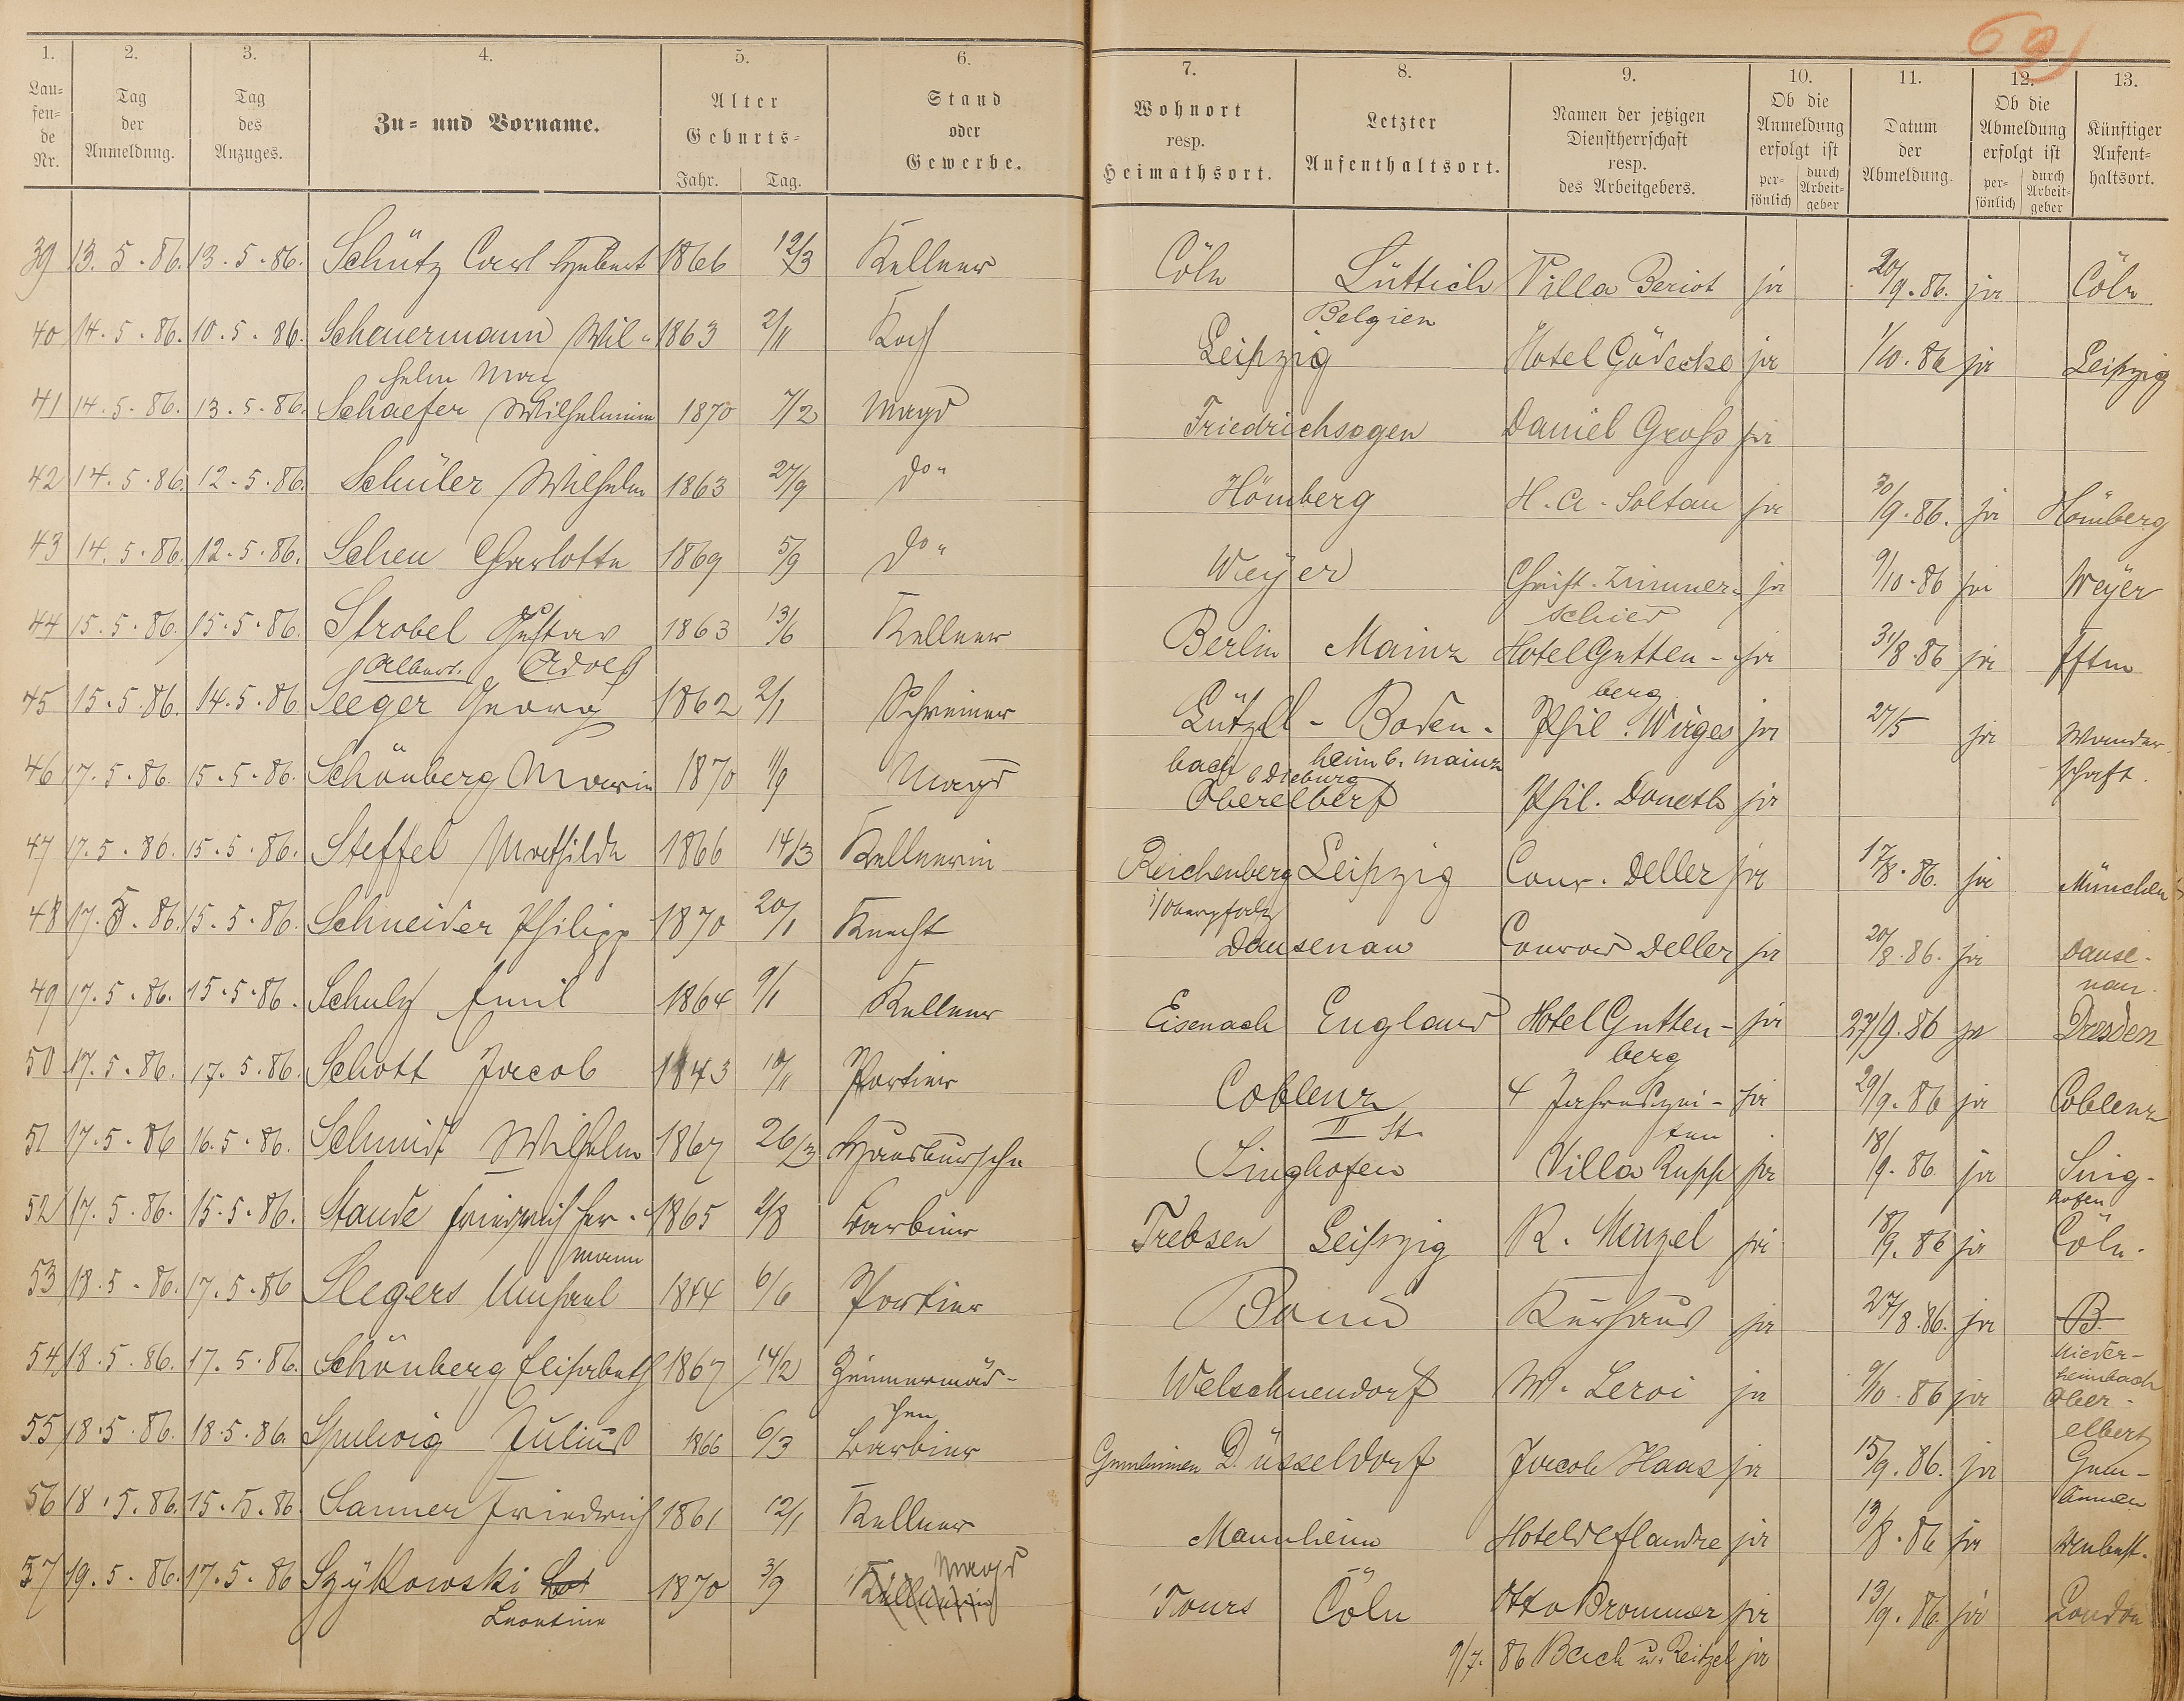 69)
1. 2. 3. 4. 5. 6. 7. 8. 9. 10. 11. 12. 13.
Laufende Nr. | Tag der Anmeldung. | Tag des Anzuges. | Zu= und Vorname. | Alter Geburts= Jahr. Tag. | Stand oder Gewerbe. | Wohnort resp. Heimathsort. | Letzter Aufenthaltsort. | Namen der jetzigen Dienstherrschaft resp. des Arbeitgebers. | Ob die Anmeldung erfolgt ist persönlich durch Arbeitgeber | Datum der Abmeldung. | Ob die Abmeldung erfolgt ist persönlich durch Arbeitgeber | Künftiger Aufenthaltsort.
39 13. 5. 86. 13. 5. 86. Schütz Carl Hubert 1866 12/3 Kellner Cöln Lüttich Villa Beriot ja 20/9. 86. ja Cöln
Belgien
40 14. 5. 86. 10. 5. 86. Scheuermann Wil- 1863 2/11 Koch Leipzig Hotel Gödecke ja 1/10. 86 ja Leipzig
helm Max
41 14. 5. 86. 13. 5. 86. Schaefer Wilhelmine 1870 7/2 Magd Friedrichsegen Daniel Groß ja
42 14. 5. 86. 12. 5. 86. Schüler Wilhelm 1863 27/9 do " Hömberg H. A. Soltau ja 30/9. 86. ja Hömberg
43 14. 5. 86. 12. 5. 86. Scheu Charlotte 1869 5/9 do " Weyer Christ. Zimmer- ja 9/10. 86 ja Weyer
schied
44 15. 5. 86. 15. 5. 86. Strobel Gustav 1863 13/6 Kellner Berlin Mainz Hotel Gutten- ja 31/8. 86 ja
Albert. Adolf berg
45 15. 5. 86. 14. 5. 86 Seeger Georg 1862 2/1 Schreiner Lützel- Boden- Phil. Wirges ja 27/5 ja Wander-
bach b Dieburg heim b. Mainz schaft.
46 17. 5. 86. 15. 5. 86. Schönberg Marie 1870 11/9 Magd Oberelbert Phil. Doneth ja
47 17. 5. 86. 15. 5. 86. Steffel Mathilde 1866 14/3 Kellnerin Reichenberg Leipzig Conr. Deller ja 17/8. 86. ja München
i/Oberpfalz
48 17. 5. 86. 15. 5. 86. Schneider Philipp 1870 20/1 Knecht Dausenau Conrad Deller ja 20/8. 86. ja Dause-
nau.
49 17. 5. 86. 15. 5. 86. Schulz Emil 1864 9/1 Kellner Eisenach England Hotel Gutten- ja 27/9. 86 ja Dresden
berg
50 17. 5. 86. 17. 5. 86. Schott Jacob 1843 Portier Coblenz 4 Jahreszei- ja 29/9. 86 ja Coblenz
ten
51 17. 5. 86 16. 5. 86. Schmidt Wilhelm 1867 26/3 Hausbursche Singhofen Villa Rupp ja 18/9. 86 ja Sing-
hofen
52 17. 5. 86. 15. 5. 86. Staude Friedrich Her- 1865 2/8 Barbier Trebsen Leipzig R. Menzel ja 18/9. 86 ja Cöln.
mann
53 18. 5. 86. 17. 5. 86 Slegers Michael 1844 6/6 Portier Bonn Kurhaus ja 27/8. 86. ja B
Nieder-
heimbach
54 18. 5. 86. 17. 5. 86. Schönberg Elisabeth 1867 14/2 Zimmermäd- Welschneudorf W. Leroi ja 9/10. 86 ja Ober-
chen elbert
55 18. 5. 86. 18. 5. 86. Julius 1866 6/3 Barbier Düsseldorf Jacob Haas ja 15/9. 86. ja
56 18. 5. 86. 15. 5. 86. Sanner Friedrich 1861 12/1 Kellner Mannheim Hotel de flandre ja 13/8. 86 ja
57 19. 5. 86. 17. 5. 86 Szykowski 1870 3/9 Kellnerin Magd Tours Cöln Otto Brommer ja 13/9. 86. ja London
Leontine
9/7. 86 Bach u. Reitzel ja